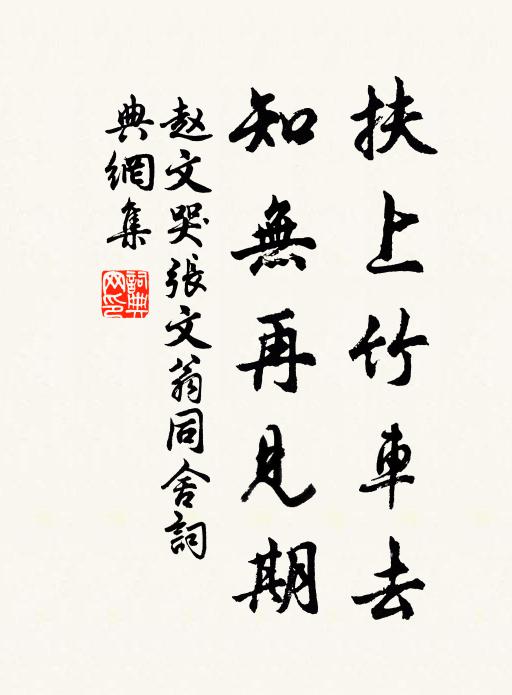 扶上竹車去
知無再見期
赵文哭張文翁同舍詞
典網集
詞典网印